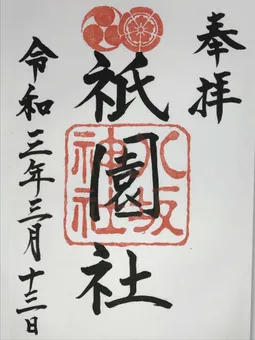 奉拝
祇園社
八坂神社
令和三年三月十三日